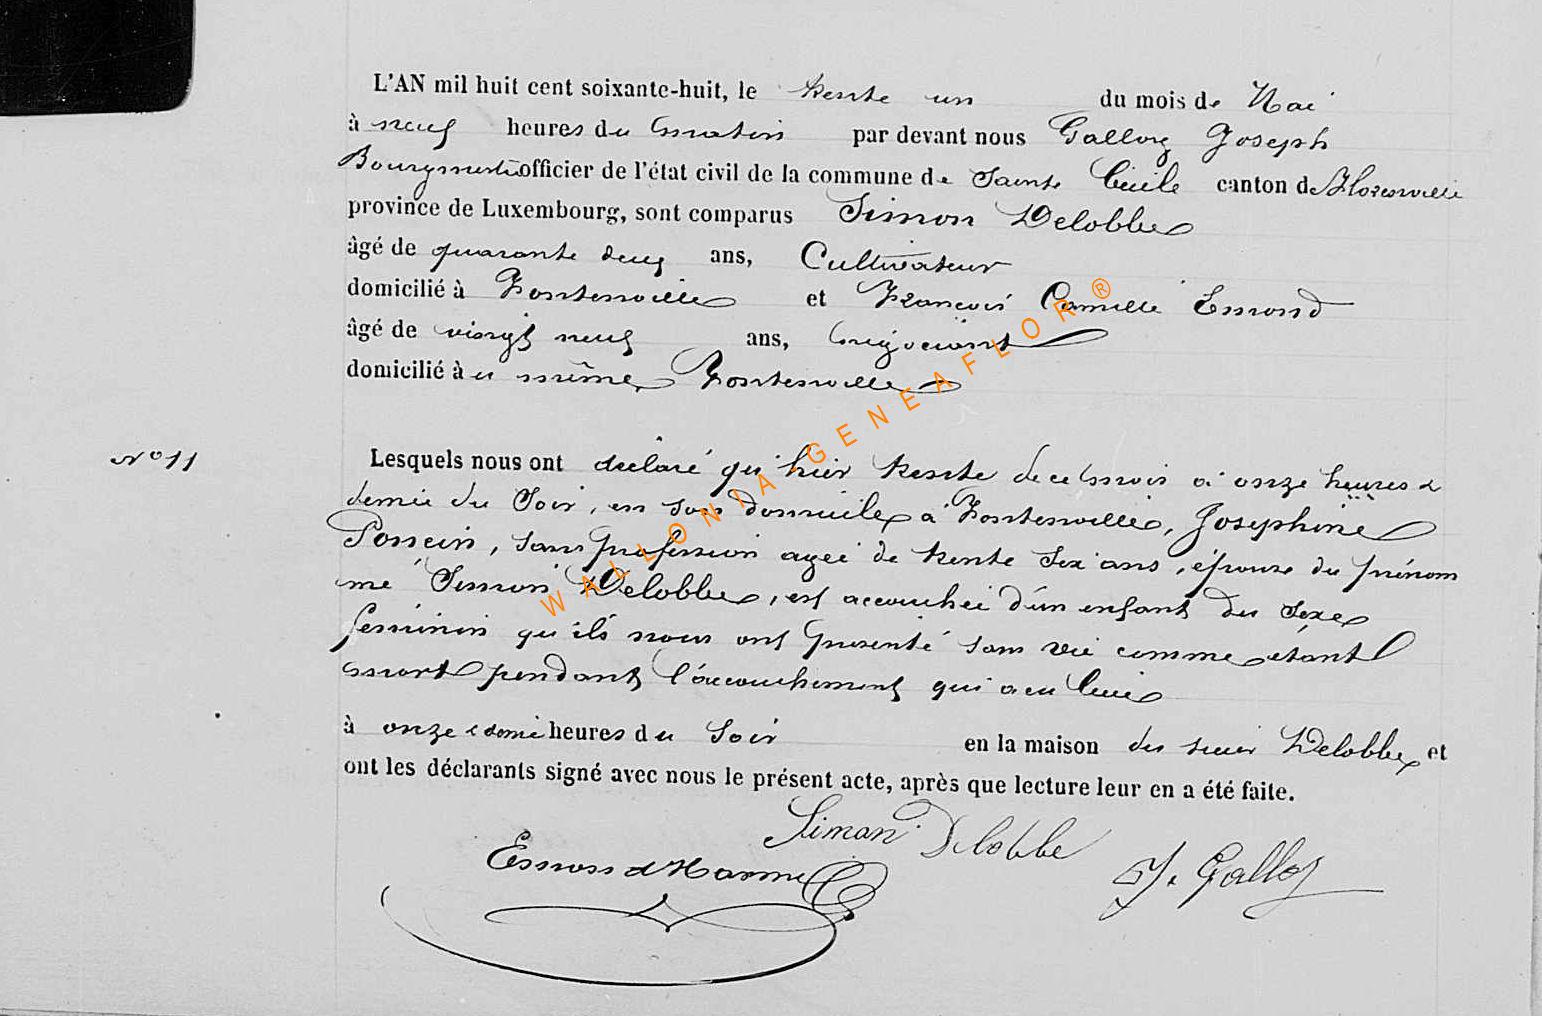 L'AN mil huit cent soixante-huit, le trente un du mois de Mai
à neuf heures du matin par devant nous Galloy Joseph
Bourgmestre officier de l'état civil de la commune de Sainte Cécile canton de Florenville
province de Luxembourg, sont comparus Simon Delobbe
âgé de quarante deux ans, Cultivateur
domicilié à Fontenoille et François Camille Emond
âgé de vingt neuf ans, négociant
domicilié à u même Fontenoille
N° 11
Lesquels nous ont déclaré qu'hier trente de ce mois à onze heures &
demie du Soir, en son domicile à Fontenoille, Josephine
Poncin, sans profession agée de trente Six ans, épouse du prénom
mé Simon Delobbe, est accouchée d'un enfant du Sexe
féminin qu'ils nous ont presenté sans vie comme étant
mort pendant l'accouchement qui a eu lieu
à onze & demie heures du Soir en la maison du sieur Delobbe et
ont les déclarants signé avec nous le présent acte, après que lecture leur en a été faite.
Siman Delobbe
Emond J. Galloy
WALLONIA-GENEAFLOR ®